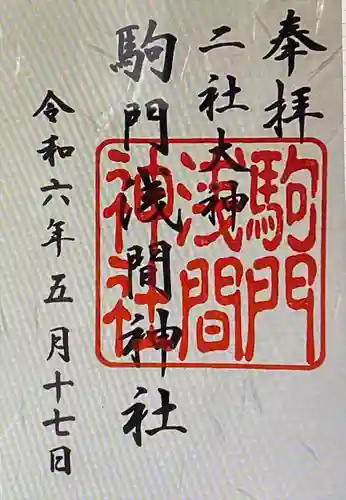 奉拝
二社大神
駒門浅間神社
令和六年五月十七日
駒門
浅間
神社